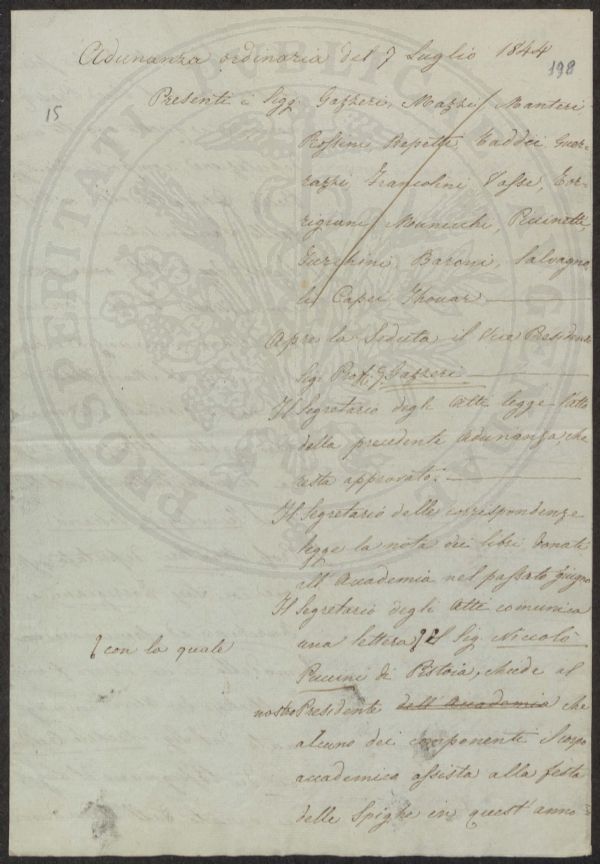 Adunanza ordinaria del 7 Luglio 1844
198
15
Presenti i Sigg. Gazzeri, Mazzi, Manteri
Rossini Repetti, Taddei Guer-
razzi, Francolini Vasse, Tor-
rigiani Municchi, Puccinotti,
Baroni, Salvagno
li Capei Thouar
Apre la Seduta il Vice Presidente
Sig. Prof. G. Gazzeri
Il Segretario degli Atti legge l'atto
della precedente adunanza, che
resta approvato.
Il Segretario delle corrispondenze
legge la nota dei libri donati
all'Accademia nel passato giugno
Il Segretario degli Atti comunica
una lettera il Sig. Niccolò
con la quale
Puccini di Pistoia, chiede al
nostro Presidente dell'Accademia che
alcuno dei componenti il corpo
accademico assista alla festa
delle Spighe in quest'anno
PROSPERITATI PUBLICAE AUGENDAE